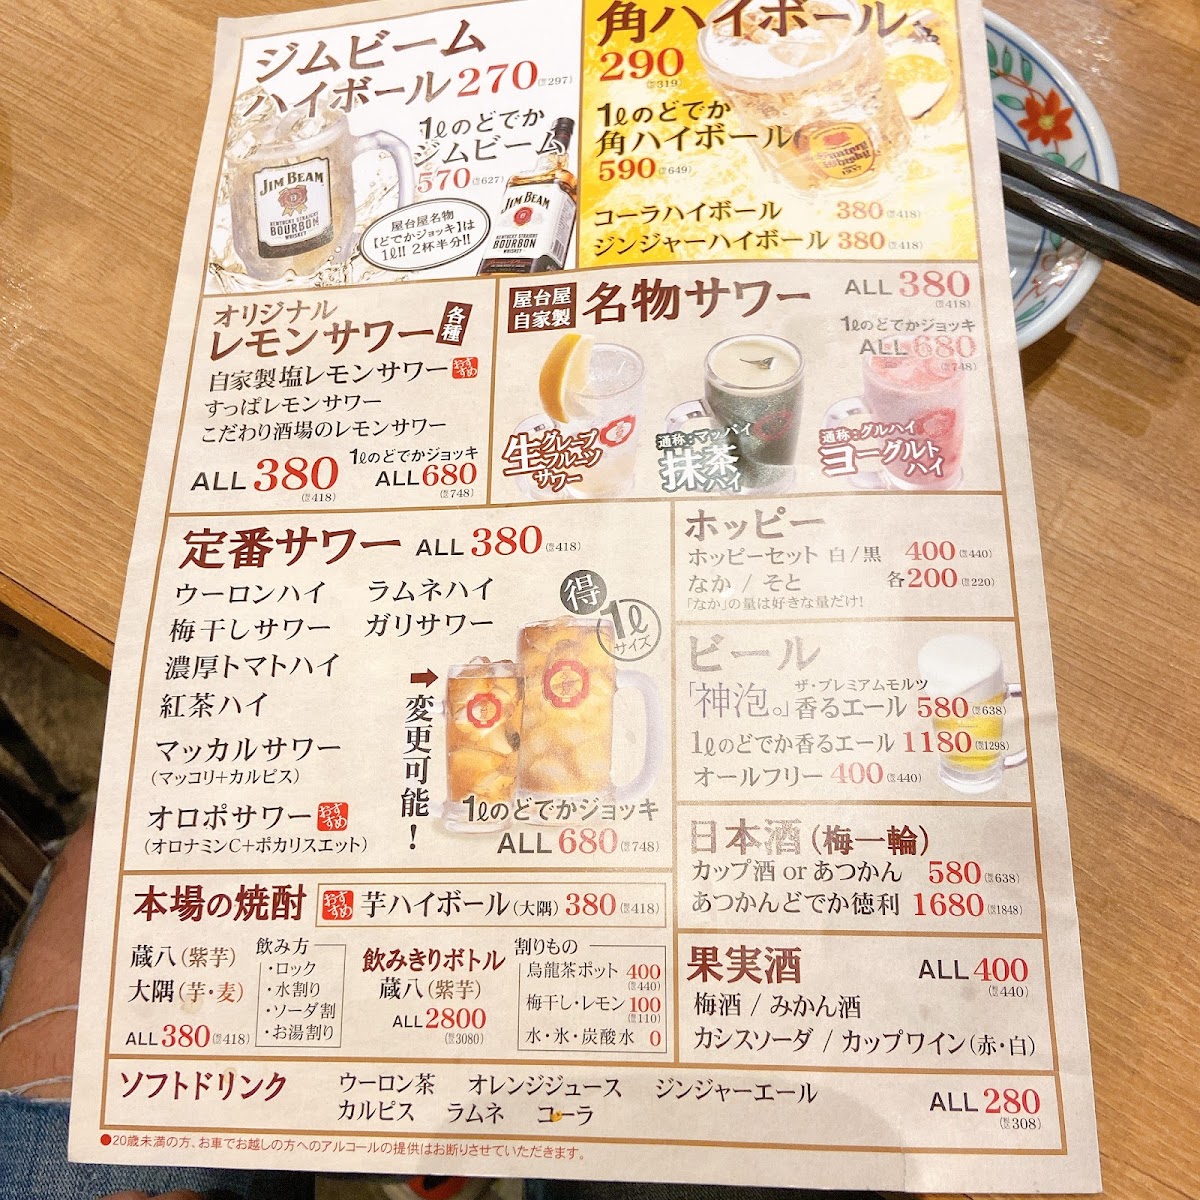 ジムビーム
ハイボール 270 (税297)
1ℓのどでか
ジムビーム
570 (税627)
JIM BEAM
KENTUCKY STRAIGHT
BOURBON
WHISKEY
屋台屋名物
【どでかジョッキ】は
1ℓ!! 2杯半分!!
JIM BEAM
KENTUCKY STRAIGHT
BOURBON
角ハイボール
290
(税319)
1ℓのどでか
角ハイボール
590 (税649)
Suntory
Whisky
コーラハイボール 380 (税418)
ジンジャーハイボール 380 (税418)
オリジナル
レモンサワー 各種
自家製塩レモンサワー おすすめ
すっぱレモンサワー
こだわり酒場のレモンサワー
ALL 380 (税418)
1ℓのどでかジョッキ
ALL 680 (税748)
屋台屋
自家製
名物サワー
ALL 380
(税418)
1ℓのどでかジョッキ
ALL 680
(税748)
生グレープフルーツサワー
通称:マッバイ
抹茶ハイ
通称:グルハイ
ヨーグルトハイ
定番サワー ALL 380 (税418)
ウーロンハイ ラムネハイ
梅干しサワー ガリサワー
濃厚トマトハイ
紅茶ハイ
マッカルサワー
(マッコリ+カルピス)
オロポサワー おすすめ
(オロナミンC+ポカリスエット)
得
1ℓ
サイズ
➡変更可能!
1ℓのどでかジョッキ
ALL 680 (税748)
ホッピー
ホッピーセット 白/黒 400 (税440)
なか / そと 各200 (税220)
「なか」の量は好きな量だけ!
ビール
「神泡。」 ザ・プレミアムモルツ
香るエール 580 (税638)
1ℓのどでか香るエール 1180 (税1298)
オールフリー 400 (税440)
日本酒(梅一輪)
カップ酒 or あつかん 580 (税638)
あつかんどでか徳利 1680 (税1848)
本場の焼酎
おすすめ 芋ハイボール(大隅) 380 (税418)
蔵八(紫芋)
大隅(芋・麦)
ALL 380 (税418)
飲み方
・ロック
・水割り
・ソーダ割
・お湯割り
飲みきりボトル
蔵八(紫芋)
ALL 2800
(税3080)
割りもの
烏龍茶ポット 400
(税440)
梅干し・レモン 100
(税110)
水・氷・炭酸水 0
果実酒 ALL 400
(税440)
梅酒 / みかん酒
カシスソーダ / カップワイン(赤・白)
ソフトドリンク
ウーロン茶 オレンジジュース ジンジャーエール
カルピス ラムネ コーラ
ALL 280
(税308)
●20歳未満の方、お車でお越しの方へのアルコールの提供はお断りさせていただきます。